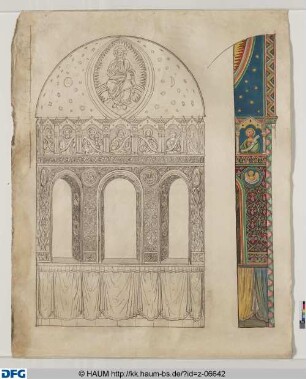 DFG © HAUM http://kk.haum-bs.de/?id=z-06642